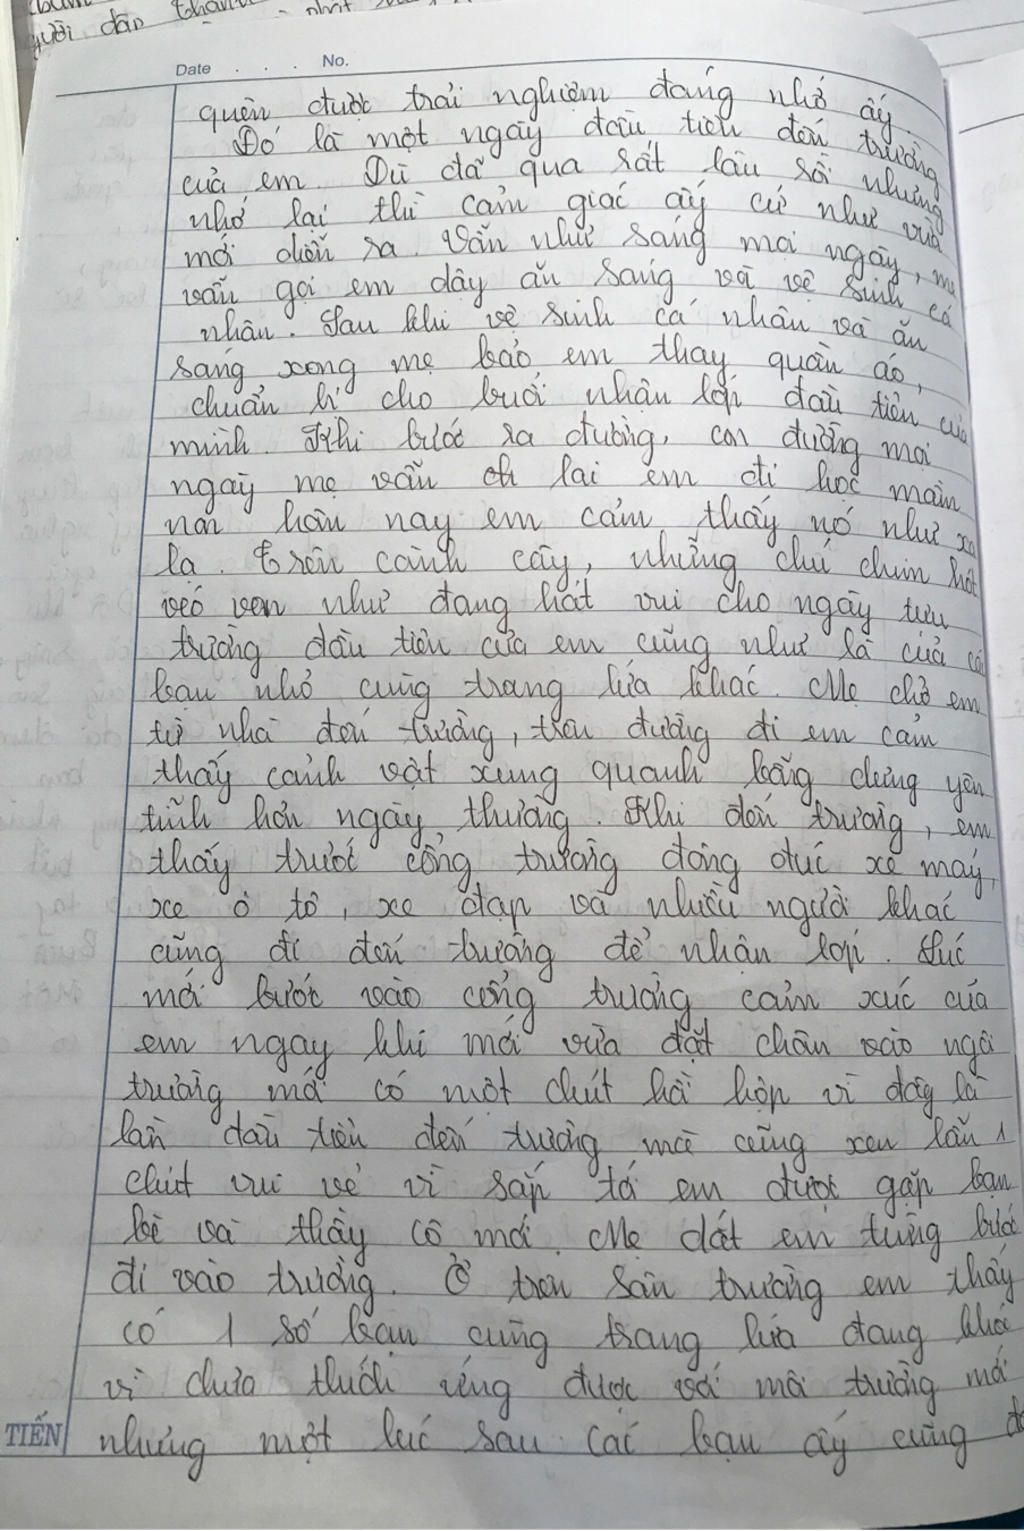 người dân
Date . . . No.
quên được trải nghiệm đáng nhớ ấy.
Đó là một ngày đầu tiên đến trường
của em. Dù đã qua rất lâu rồi nhưng
nhớ lại thì cảm giác ấy cứ như vừa
mới diễn ra. Vẫn như sáng mọi ngày, mẹ
vẫn gọi em dậy ăn sáng và vệ sinh cá
nhân. Sau khi vệ sinh cá nhân và ăn
sáng xong mẹ bảo em thay quần áo,
chuẩn bị cho buổi nhận lớp đầu tiên của
mình. Khi bước ra đường, con đường mọi
ngày mẹ vẫn lai em đi học mầm
non hôm nay em cảm thấy nó như xa
lạ. Trên cành cây, những chú chim hót
véo von như đang hát vui cho ngày tựu
trường đầu tiên của em cũng như là của cá
bạn nhỏ cùng trang lứa khác. Mẹ chở em
từ nhà đến trường, trên đường đi em cảm
thấy cảnh vật xung quanh bỗng chưng yên
tĩnh hơn ngày thường. Khi đến trường, em
thấy trước cổng trường đông đúc xe máy,
xe ô tô, xe đạp và nhiều người khác
cũng đi đến trường để nhận lớp. Lúc
mới bước vào cổng trường cảm xúc của
em ngay khi mới vừa đặt chân vào ngôi
trường mới có một chút hồi hộp vì đây là
lần đầu tiên đến trường mà cũng xen lẫn 1
chút vui vẻ vì sắp tới em được gặp bạn
bè và thầy cô mới. Mẹ dắt em từng bước
đi vào trường. Ở trên sân trường em thấy
có 1 số bạn cùng trang lứa đang khóc
vì chưa thích ứng được với môi trường mới
TIẾN nhưng một lúc sau các bạn ấy cũng